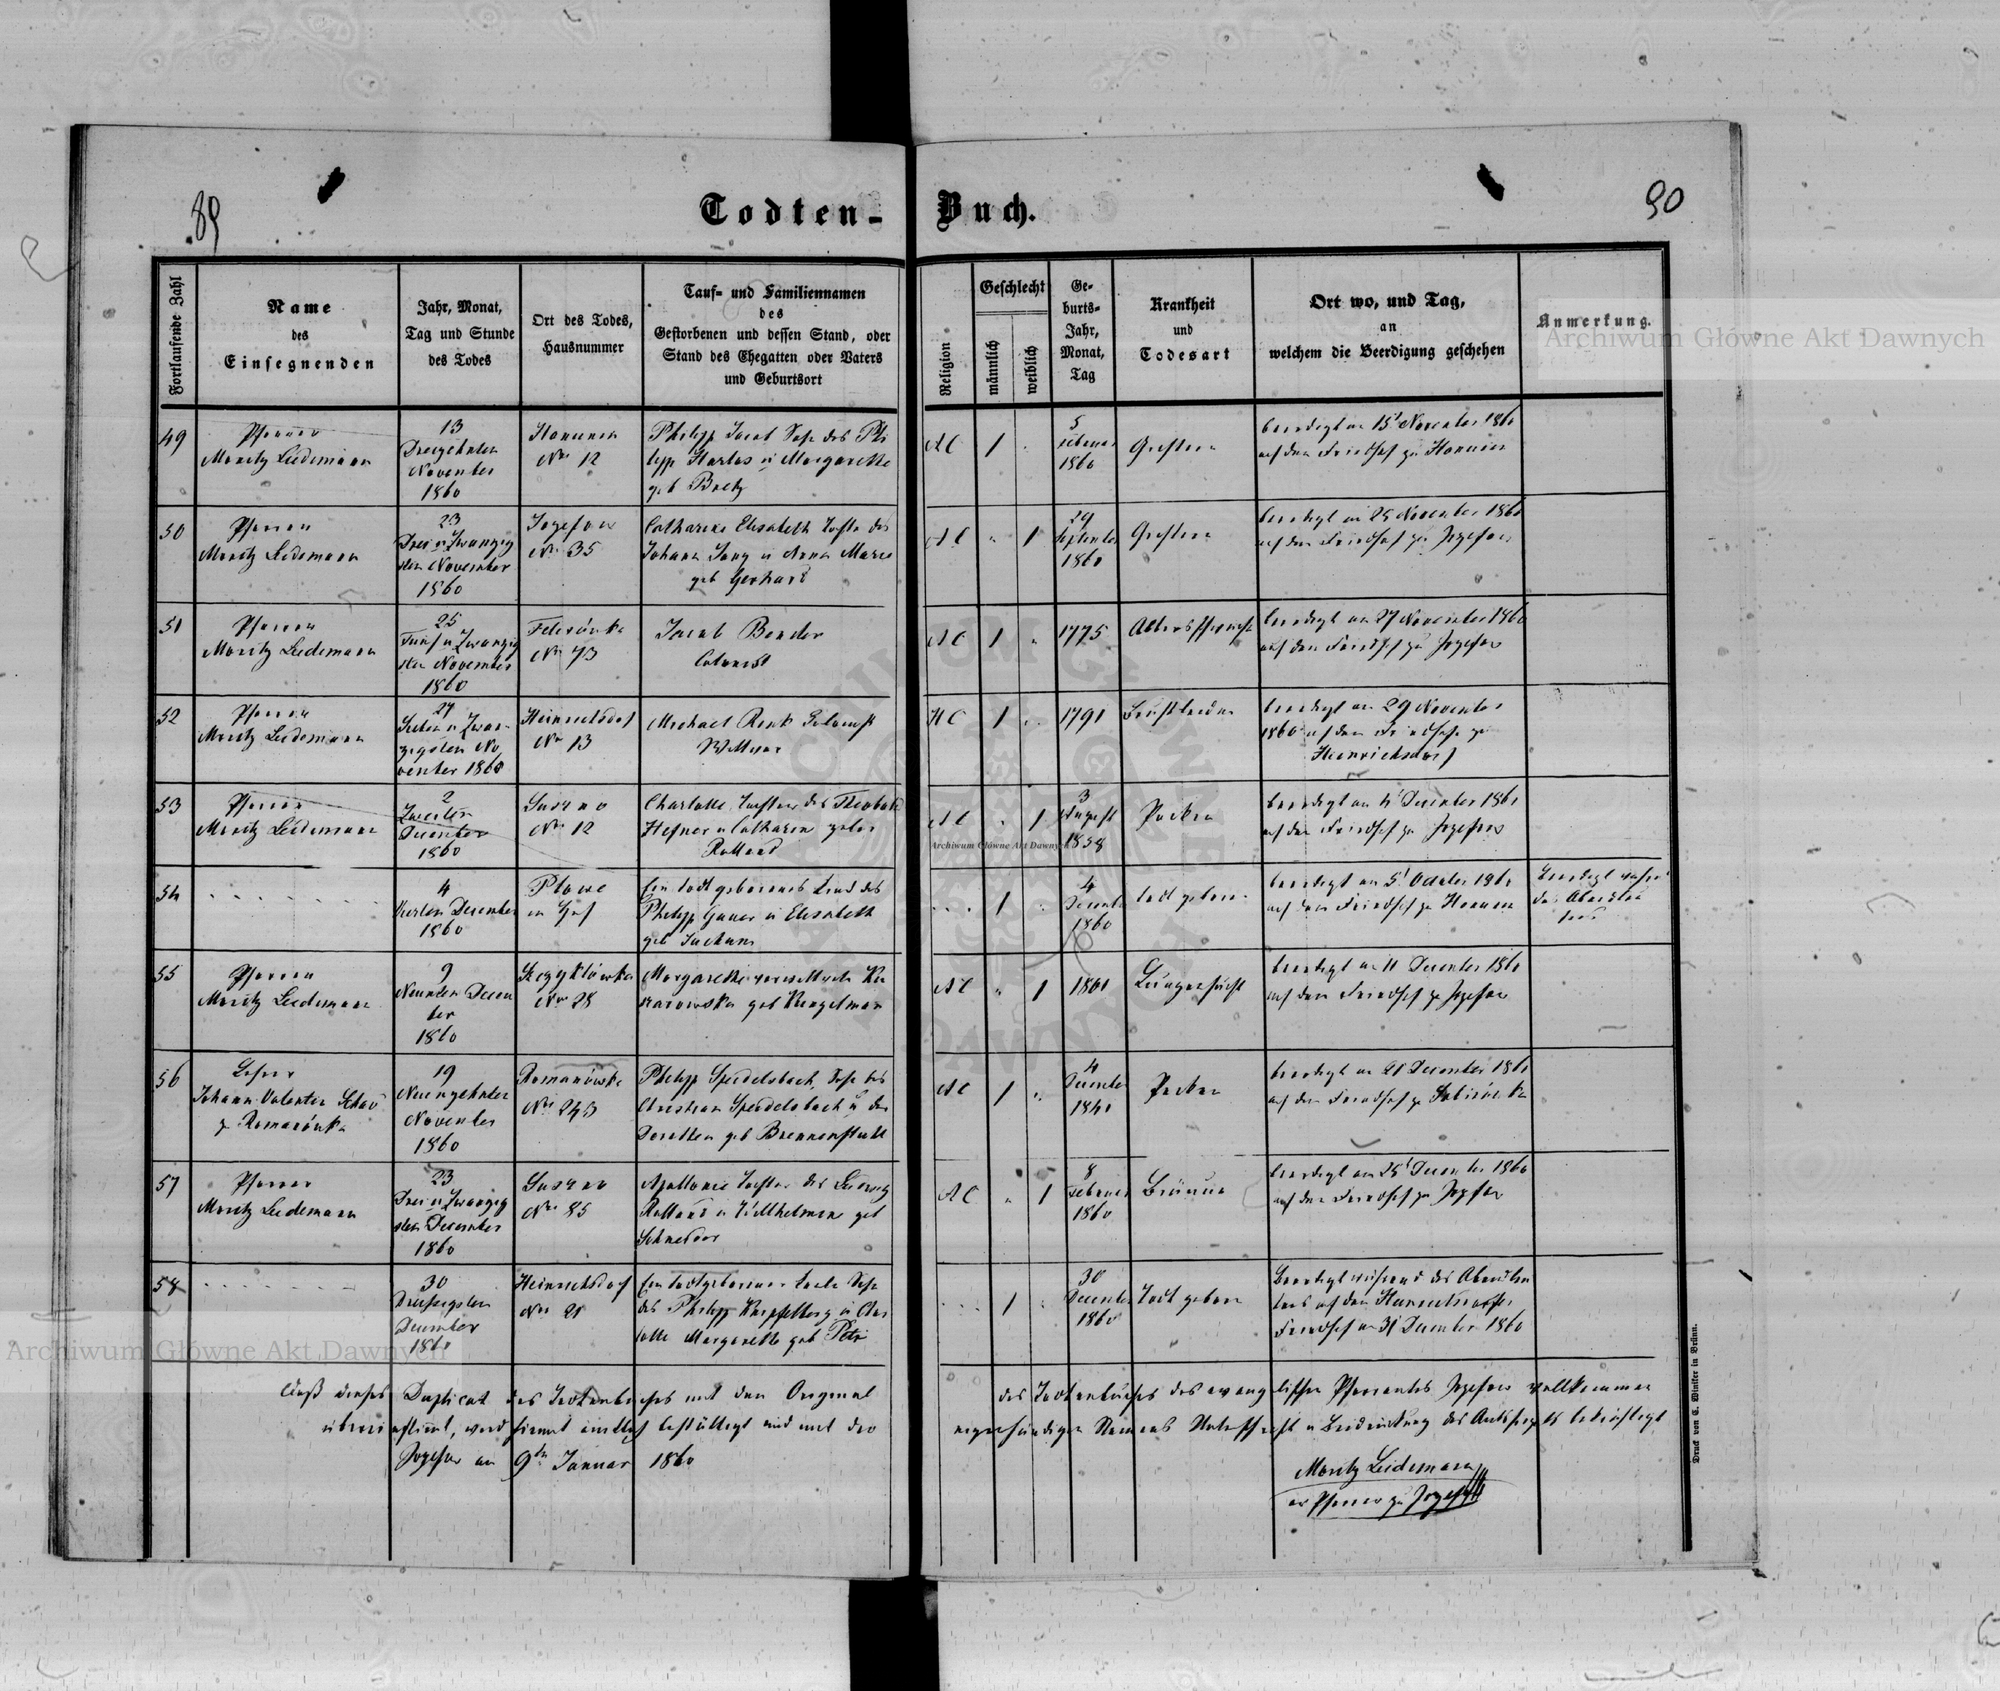 89
Todten-Buch.
90
Fortlaufende Zahl
Name
des
Einsegnenden
Jahr, Monat,
Tag und Stunde
des Todes
Ort des Todes,
Hausnummer
Tauf- und Familiennamen
des
Gestorbenen und dessen Stand, oder
Stand des Ehegatten oder Vaters
und Geburtsort
Religion
Geschlecht
männlich
weiblich
Ge-
burts-
Jahr,
Monat,
Tag
Krankheit
und
Todesart
Ort wo, und Tag,
an
welchem die Beerdigung geschehen
Anmerkung.
49
Pfarrer
Moritz Leidemann
13
Dreizehnten
November
1860
Hanunin
Nro 12
Philipp Jacob Sohn des Phi
lipp Harlos u Margarethe
geb Bretz
AC
1
5
Februar
1860
beerdigt am 15t November 1860
auf dem Friedhof zu Hanunin
50
Pfarrer
Moritz Leidemann
23
Drei u Zwanzig
sten November
1860
Jozefow
Nro 35
Catharina Elisabeth Tochter des
Johann Jung u Anna Maria
geb Gerhard
AC
1
29
September
1860
beerdigt am 25 November 1860
auf dem Friedhof zu Jozefow
51
Pfarrer
Moritz Leidemann
25
Fünf u Zwanzig
sten November
1860
Nro 73
Jacob Bender
Colonist
AC
1
1775
Altersschwäche
beerdigt am 27 November 1860
auf dem Friedhof zu Jozefow
52
Pfarrer
Moritz Leidemann
27
Sieben u Zwan
zigsten No
vember 1860
Heinrichsdorf
Nro 13
Michael Rink Colonist
Wittwer
HC
1
1791
Brustleiden
beerdigt am 29 November
1860 auf dem Friedhofe zu
Heinrichsdorf
53
Pfarrer
Moritz Leidemann
2
Zweiten
December
1860
Suszno
Nro 12
Charlotte Tochter des Theobald
Hefner u Catharina gebor
Rolland
AC
1
3
August
1858
Pocken
beerdigt am 4t December 1860
auf dem Friedhof zu Jozefow
54
4
Vierten December
1860
Plowe
im Hof
Ein todtgeborenes Kind des
Philipp Gauer u Elisabeth
geb
1
4
December
1860
todt geboren
beerdigt am 5t October 1860
auf dem Friedhof zu Hanunin
55
Pfarrer
Moritz Leidemann
9
Neunten Decem
ber
1860
Nro 28
Margarethe verwittwete
geb
AC
1
Lungensucht
beerdigt am 11 December 1860
auf dem Friedhof zu Jozefow
56
Lehrer
Johann Valentin
z Romanówka
19
Neunzehnten
November
1860
Romanówka
Philipp Speidelsbach, Sohn des
Christian Speidelsbach u der
Dorothea geb Brennenstuhl
AC
1
4
December
Pocken
beerdigt am 21 December 1860
auf dem Friedhof zu
57
Pfarrer
Moritz Leidemann
23
Drei u Zwanzig
sten December
1860
Suszno
Nro 85
Apollonie Tochter des Ludwig
Rolland u Willhelmine geb
Schneider
AC
1
8
Februar
1860
Bräune
beerdigt am 25t December 1860
auf dem Friedhof zu Jozefow
58
30
Dreisigsten
December
1860
Heinrichsdorf
Ein todtgeborener Sohn
des Philipp u Char
lotte Margarethe geb Petri
1
30
December
1860
Todt geboren
Beerdigt während des
auf dem Heinrichsdorfer
Friedhof am 31 December 1860
Daß dieses Duplicat des Todtenbuches mit dem Original des Todtenbuches des evangelischen Pfarramtes Jozefow vollkommen
übereinstimmt, wird hiermit amtlich bestättigt und mit der eigenhändigen Namens Unterschrift u Beidrückung des Amtssiegels bekräftigt
Jozefow am 9ten Januar 1860
Moritz Leidemann
ev Pfarrer zu Jozefow
Druck von C. Winiker in Brünn.
Archiwum Główne Akt Dawnych
Archiwum Główne Akt Dawnych
Archiwum Główne Akt Dawnych